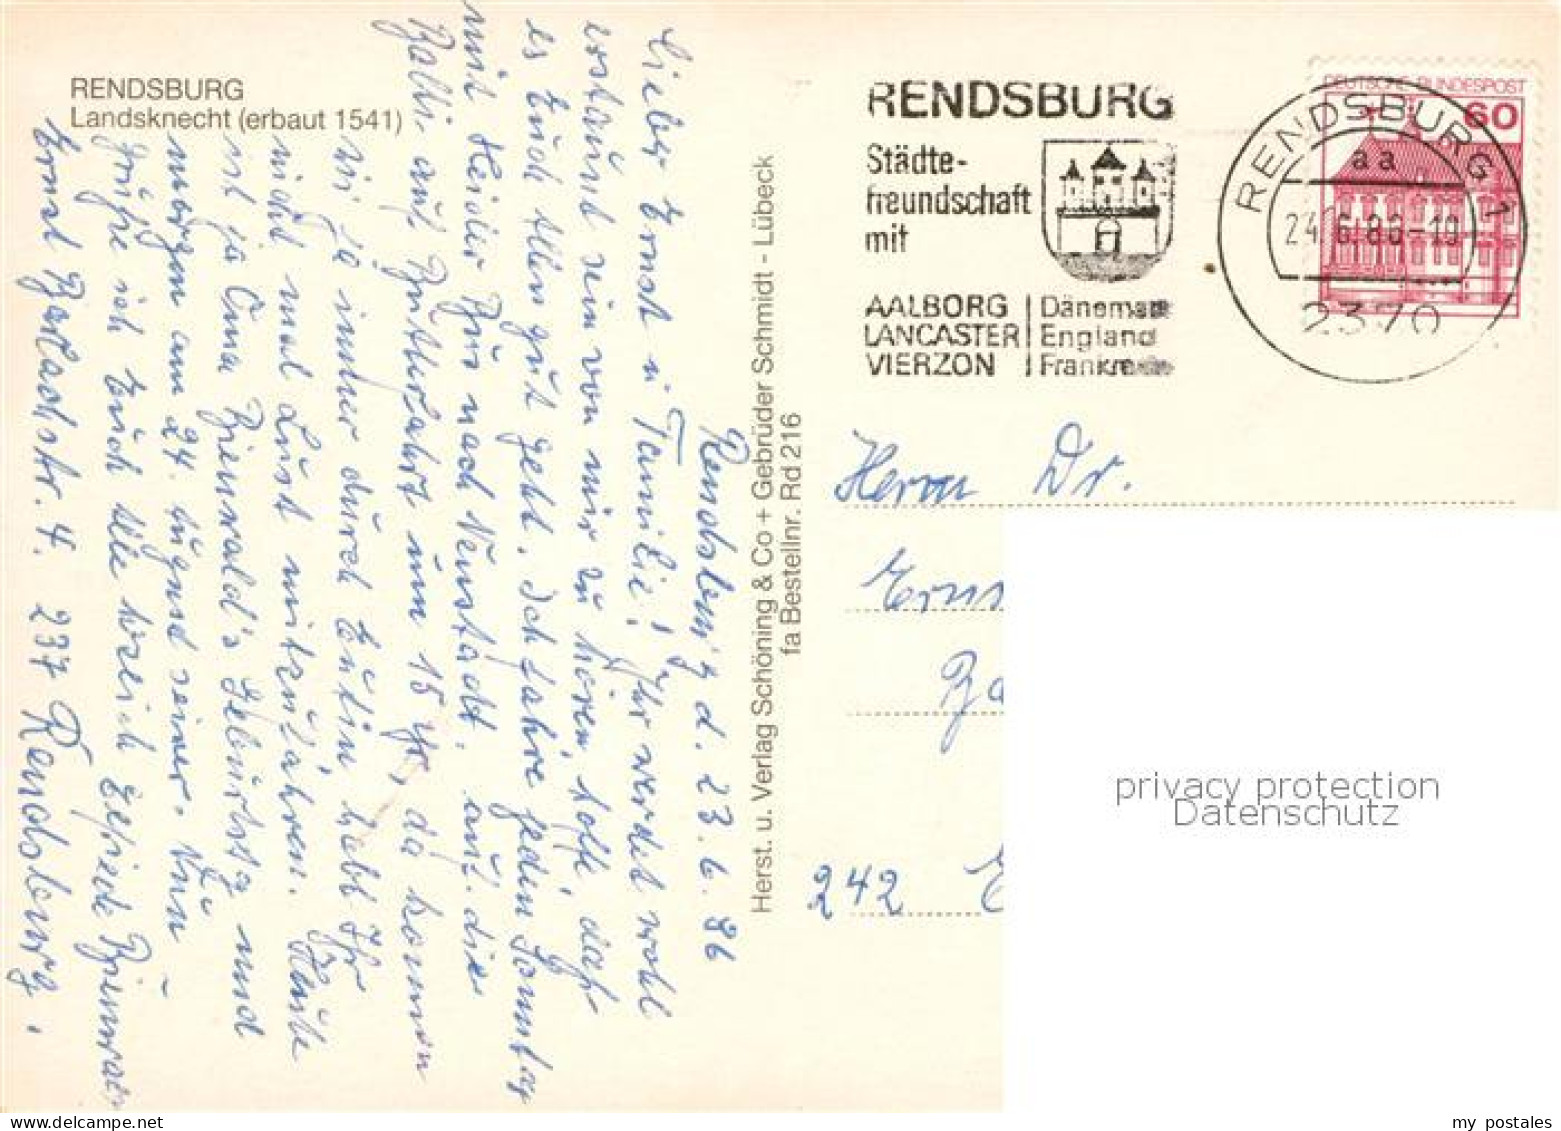 RENDSBURG
Landsknecht (erbaut 1541)
Rendsburg d. 23.6.86
Lieber Ernst u Familie! Ihr werdet wohl
erstaunt sein von mir zu hören, hoffe, daß
es Euch allen gut geht. Ich fahre jeden Sommer
mit Heider Bus nach Neustadt, auf die
auf Butterfahrt um 15 Uhr, da kommen
wir ja immer durch Eutin, habt Ihr
nicht mal Lust mitzufahren. Heute
ist ja Oma Geburtstag und
morgen am 24.
grüße ich Euch alle
Ernst Barlachstr. 4. 237 Rendsburg.
Herst. u. Verlag Schöning & Co + Gebrüder Schmidt - Lübeck
fa Bestellnr. Rd 216
RENDSBURG
Städte-
freundschaft
mit
AALBORG | Dänemark
LANCASTER | England
VIERZON | Frankreich
DEUTSCHE BUNDESPOST
60
RENDSBURG 1
aa
24.6.86-19
2370
Herrn Dr.
Erns
Ba
242 E
privacy protection
Datenschutz
my postales